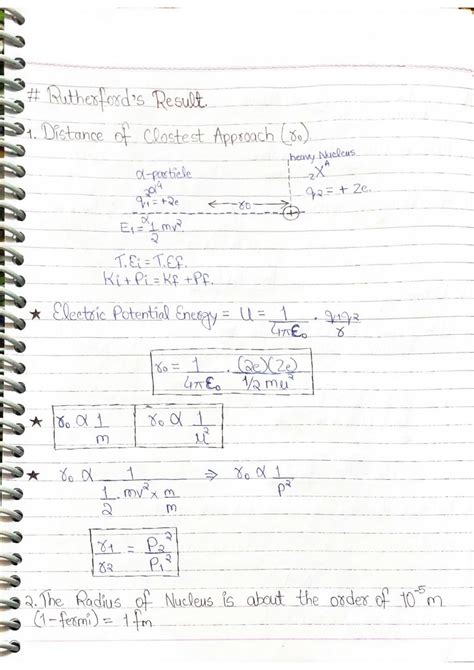 # Rutherford's Result.
1. Distance of Clostest Approach (r₀)
heavy Nucleus
α-particle
₂α⁴
zXᴬ
q₁ = +2e
q₂ = + Ze.
r₀
E₁ = 1/2 mv²
T.Ei = T.Ef.
Ki + Pi = Kf + Pf.
★ Electric Potential Energy = U = 1/4πε₀ . q₁q₂/r
r₀ = 1/4πε₀ . (2e)(Ze)/1/2 mu²
★ r₀ ∝ 1/m   r₀ ∝ 1/u²
★ r₀ ∝ 1/(1/2 . mv² × m/m) ⇒ r₀ ∝ 1/p²
r₁/r₂ = P₂²/P₁²
2. The Radius of Nucleus is about the order of 10⁻⁵ m
(1-fermi) = 1 fm